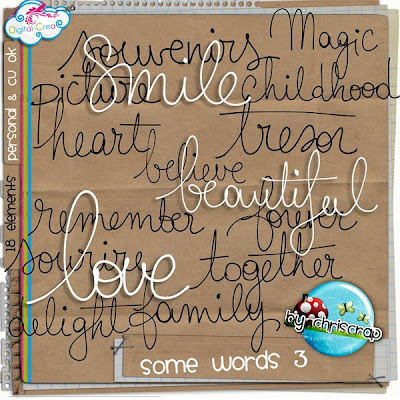 Digital-Crea
souvenirs Magic
Smile
picture childhood
heart tresor
believe
beautiful
remember forever
sourire
love together
delight family
by chriscrap
some words 3
18 elements personal & cu ok